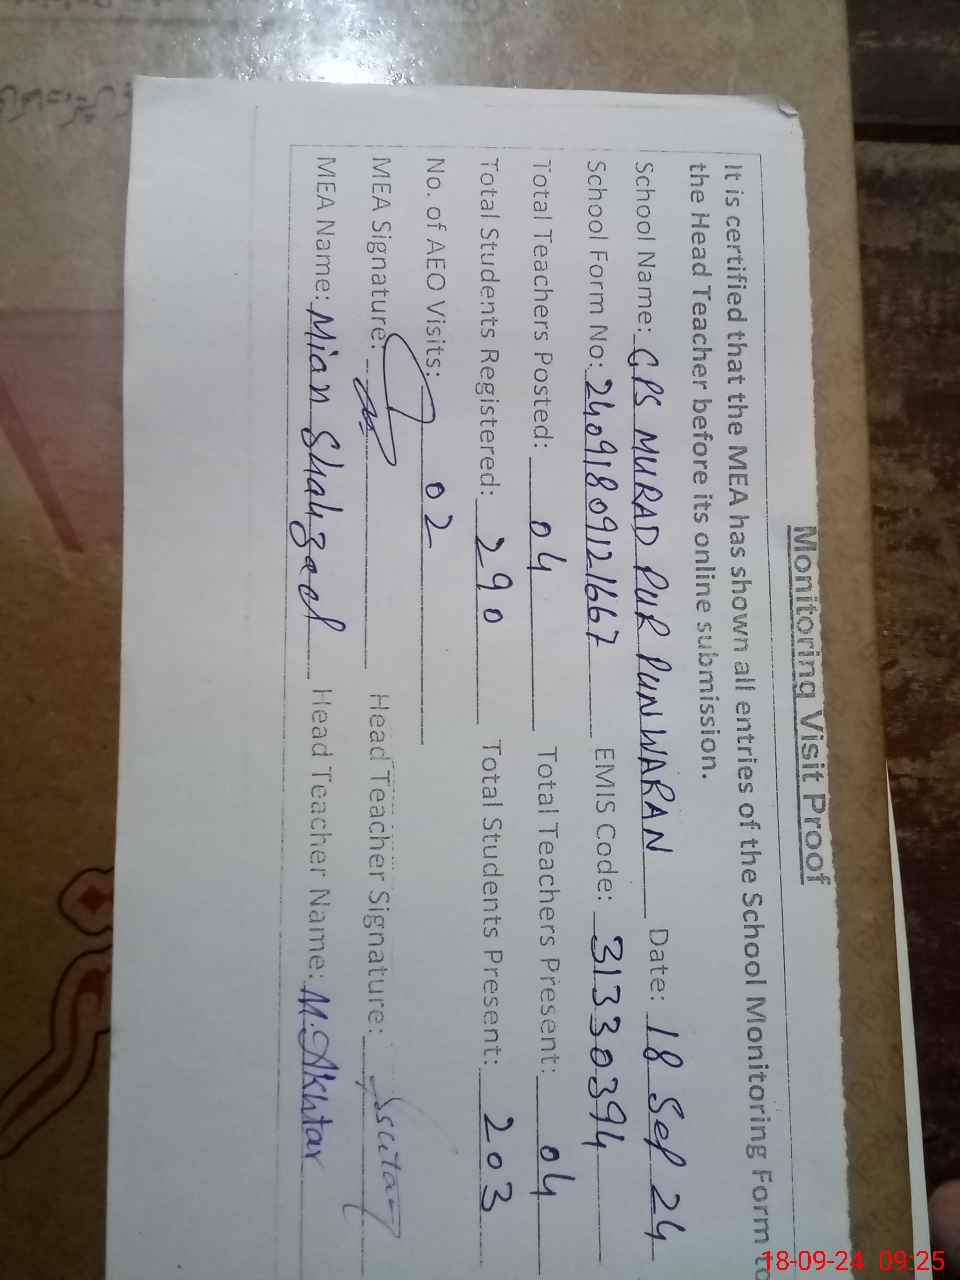 Monitoring Visit Proof
It is certified that the MEA has shown all entries of the School Monitoring Form to
the Head Teacher before its online submission.
School Name: GPS MURAD PUR PUNWARAN Date: 18 Sep 24
School Form No: 24091809121667 EMIS Code: 31330394
Total Teachers Posted: 04 Total Teachers Present: 04
Total Students Registered: 290 Total Students Present: 203
No. of AEO Visits: 02
MEA Signature: Head Teacher Signature:
MEA Name: Mian Shahzad Head Teacher Name: M. Akhtar
18-09-24 09:25